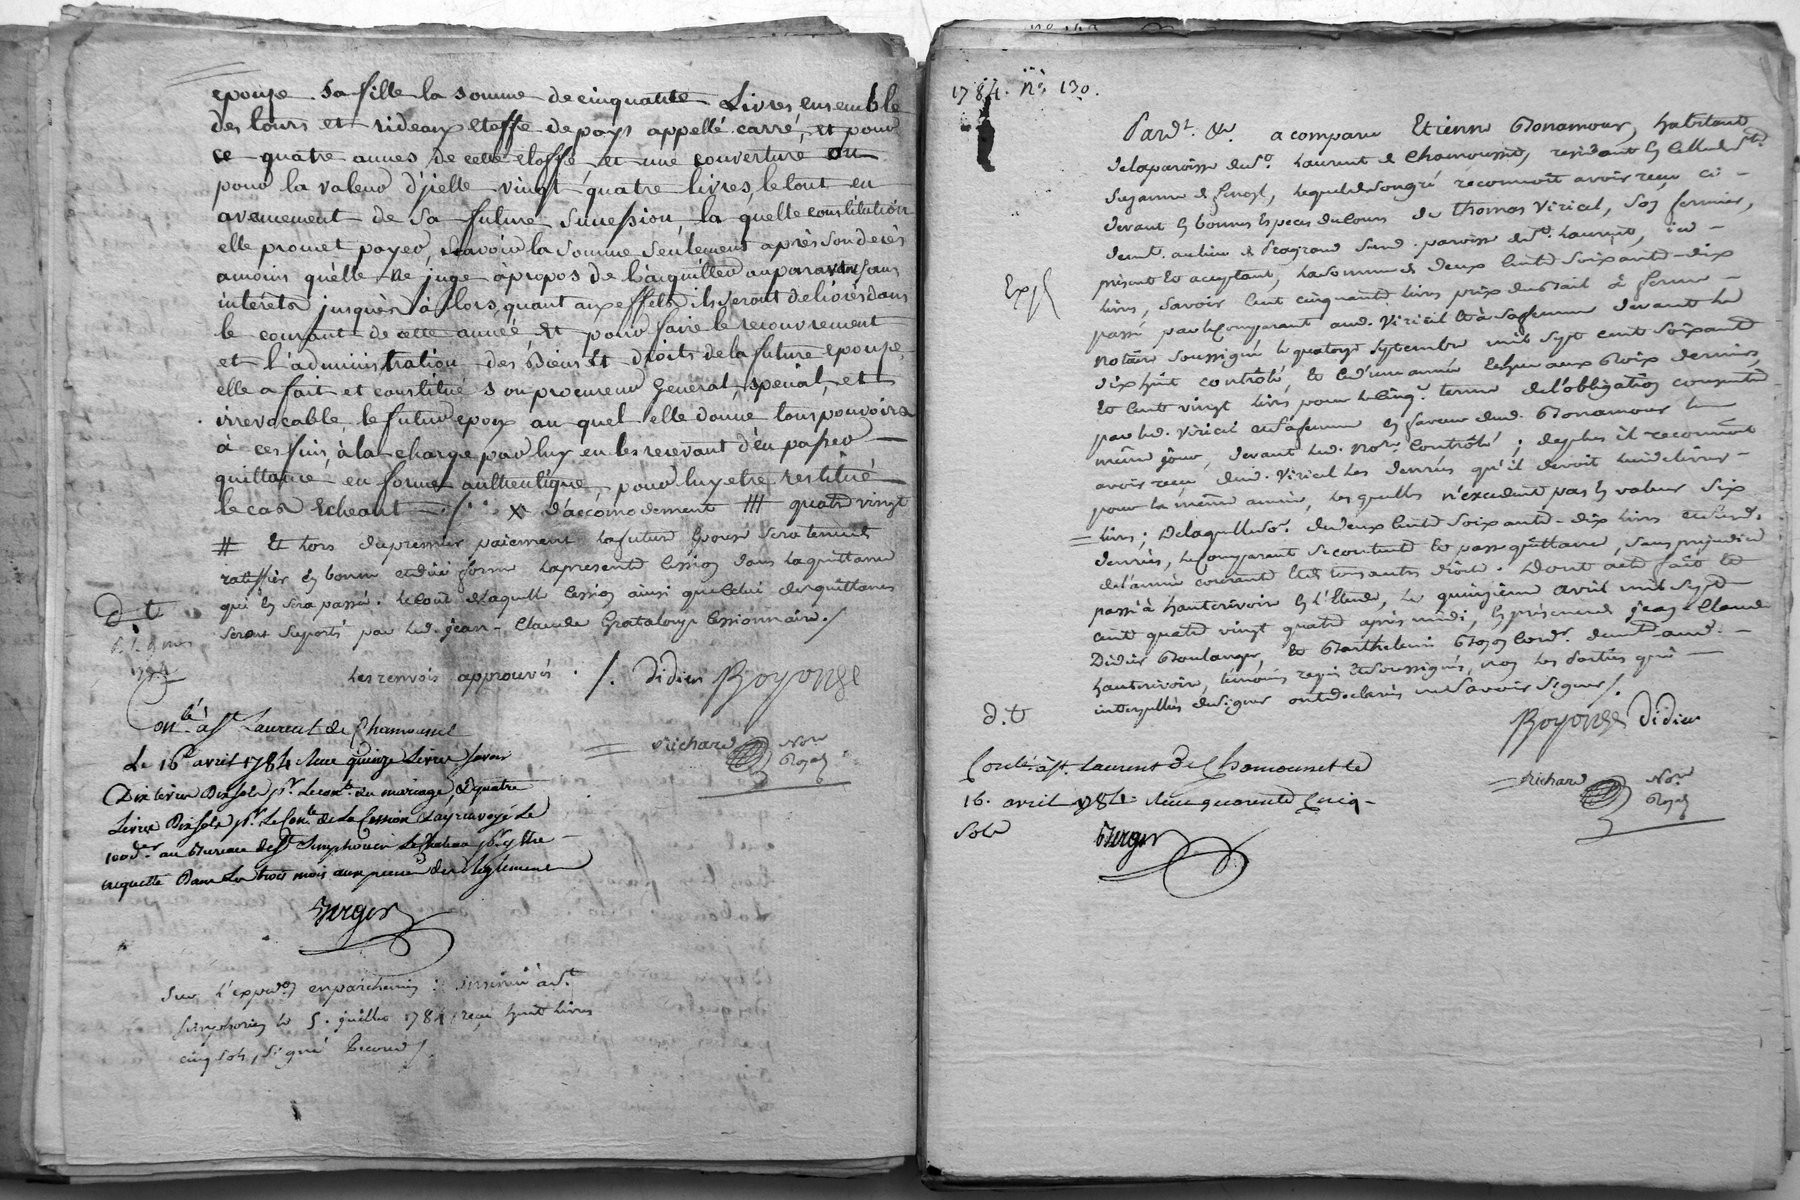 epouse sa fille la somme de cinquante Livres ensemble
des tours et rideaux etoffe de pays appellé carré, et pour
ce quatre aunes de cette etoffe, et une couverture ou
pour la valeur d'jcelle vingt quatre livres, le tout en
avancement de sa future succession, la quelle constitution
elle promet payer, savoir la somme seulement après son decès
amoins quelle ne juge àpropos de l'acquitter auparavant sans
intérêts jusques à alors, quant aux effets ils seront delivrés dans
le courant de cette année et pour faire le recouvrement
et l'administration des Biens et droits de la future epouse,
elle a fait et constitué son procureur general, special, et
irrevocable, le futur epoux au quel elle donne tous pouvoirs
à ces fins, à la charge par luy en les recevant d'en passer
quittance en forme authentique, pour luy etre restitué
le cas Echeant x d'accomodement /// quatre vingt
# Et lors dupremier paiement lafuture Epouse sera tenue
ratiffier En bonne et düe forme lapresente Cession dans laquittance
qui En sera passé. le cout de laquelle Cession ainsi que celui des quittances
seront suporté par led. jean-Claude Grataloup Cessionnaire ./
d t
1784
les renvois approuvés ./. Didier Boyonge
Richard Nore
Royal
Conlé à st Laurent de Chamousset
Le 16 avril 1784 Reçu quinze Livres savoir
Dix livres Dix sols pr. le conle du mariage, & quatre
Livres Dix sols pr. Le Conle de La Cession & ay renvoyé Le
100der au Bureau de St Simphorien Le Chateau pr y etre
acquitté Dans Les trois mois aux peines des Reglements
Verger
Sur l'expedon en parchemin : insinué à St.
Simphorien le 5. juillet 1784, reçu huit livres
cinq sols, signé
1784. no. 130.
Pardt. &c a comparu Etienne Bonamour, habitant
delaparoisse de St. Laurent de Chamousset, residant En Celle de Ste.
, lequel de son gré reconnoit avoir reçu ci-
devant En bonnes Especes du Cours de Thomas Viricel, son fermier,
demt. au lieu de susd. paroisse de St. Laurent, ici
present Et acceptant, la somme de deux Cents soixante-dix
livres, savoir Cent cinquante livres prix du Bail à ferme
Exp
passé par le Comparant aud. Viricel Et à sa femme devant le
notaire soussigné le quatorze septembre mil sept cent soixante
dix huit contrôlé, Et led'une année Echüe aux Rois derniers,
Et Cent vingt livres pour le cinq.e terme de l'obligation consentie
par led. Viricel Et sa femme En faveur dud. Bonamour le
même jour, devant led. Nore. Contrôlé ; de plus il reconnoit
avoir reçu dud. Viricel les denrées qu'il devoit lui delivrer
pour la même année, les quelles n'excedent pas En valeur six
livres ; De laquelle so.e de deux Cents soixante-dix livres et susd.
denrées, le Comparant se contente Et passe quittance, sans prejudice
de l'année courante Et de tous autres droits. Dont acte fait Et
passé à hauterivoire En l'Etude, le quinzieme avril mil sept
cent quatre vingt quatre après midi, En presence de jean-Claude
Didier Boulanger, Et Barthelemi cordr. demts. aud.
hauterivoire, témoins requis Et soussignés, non les parties qui
interpellées de signer ont declaré ne savoir signer ./.
d. t
Boyonge Didier
Conlé à St. Laurent de Chamousset le
16. avril 1784. Reçu quarente Cinq
Sols
Verger
Richard Nore
Royal